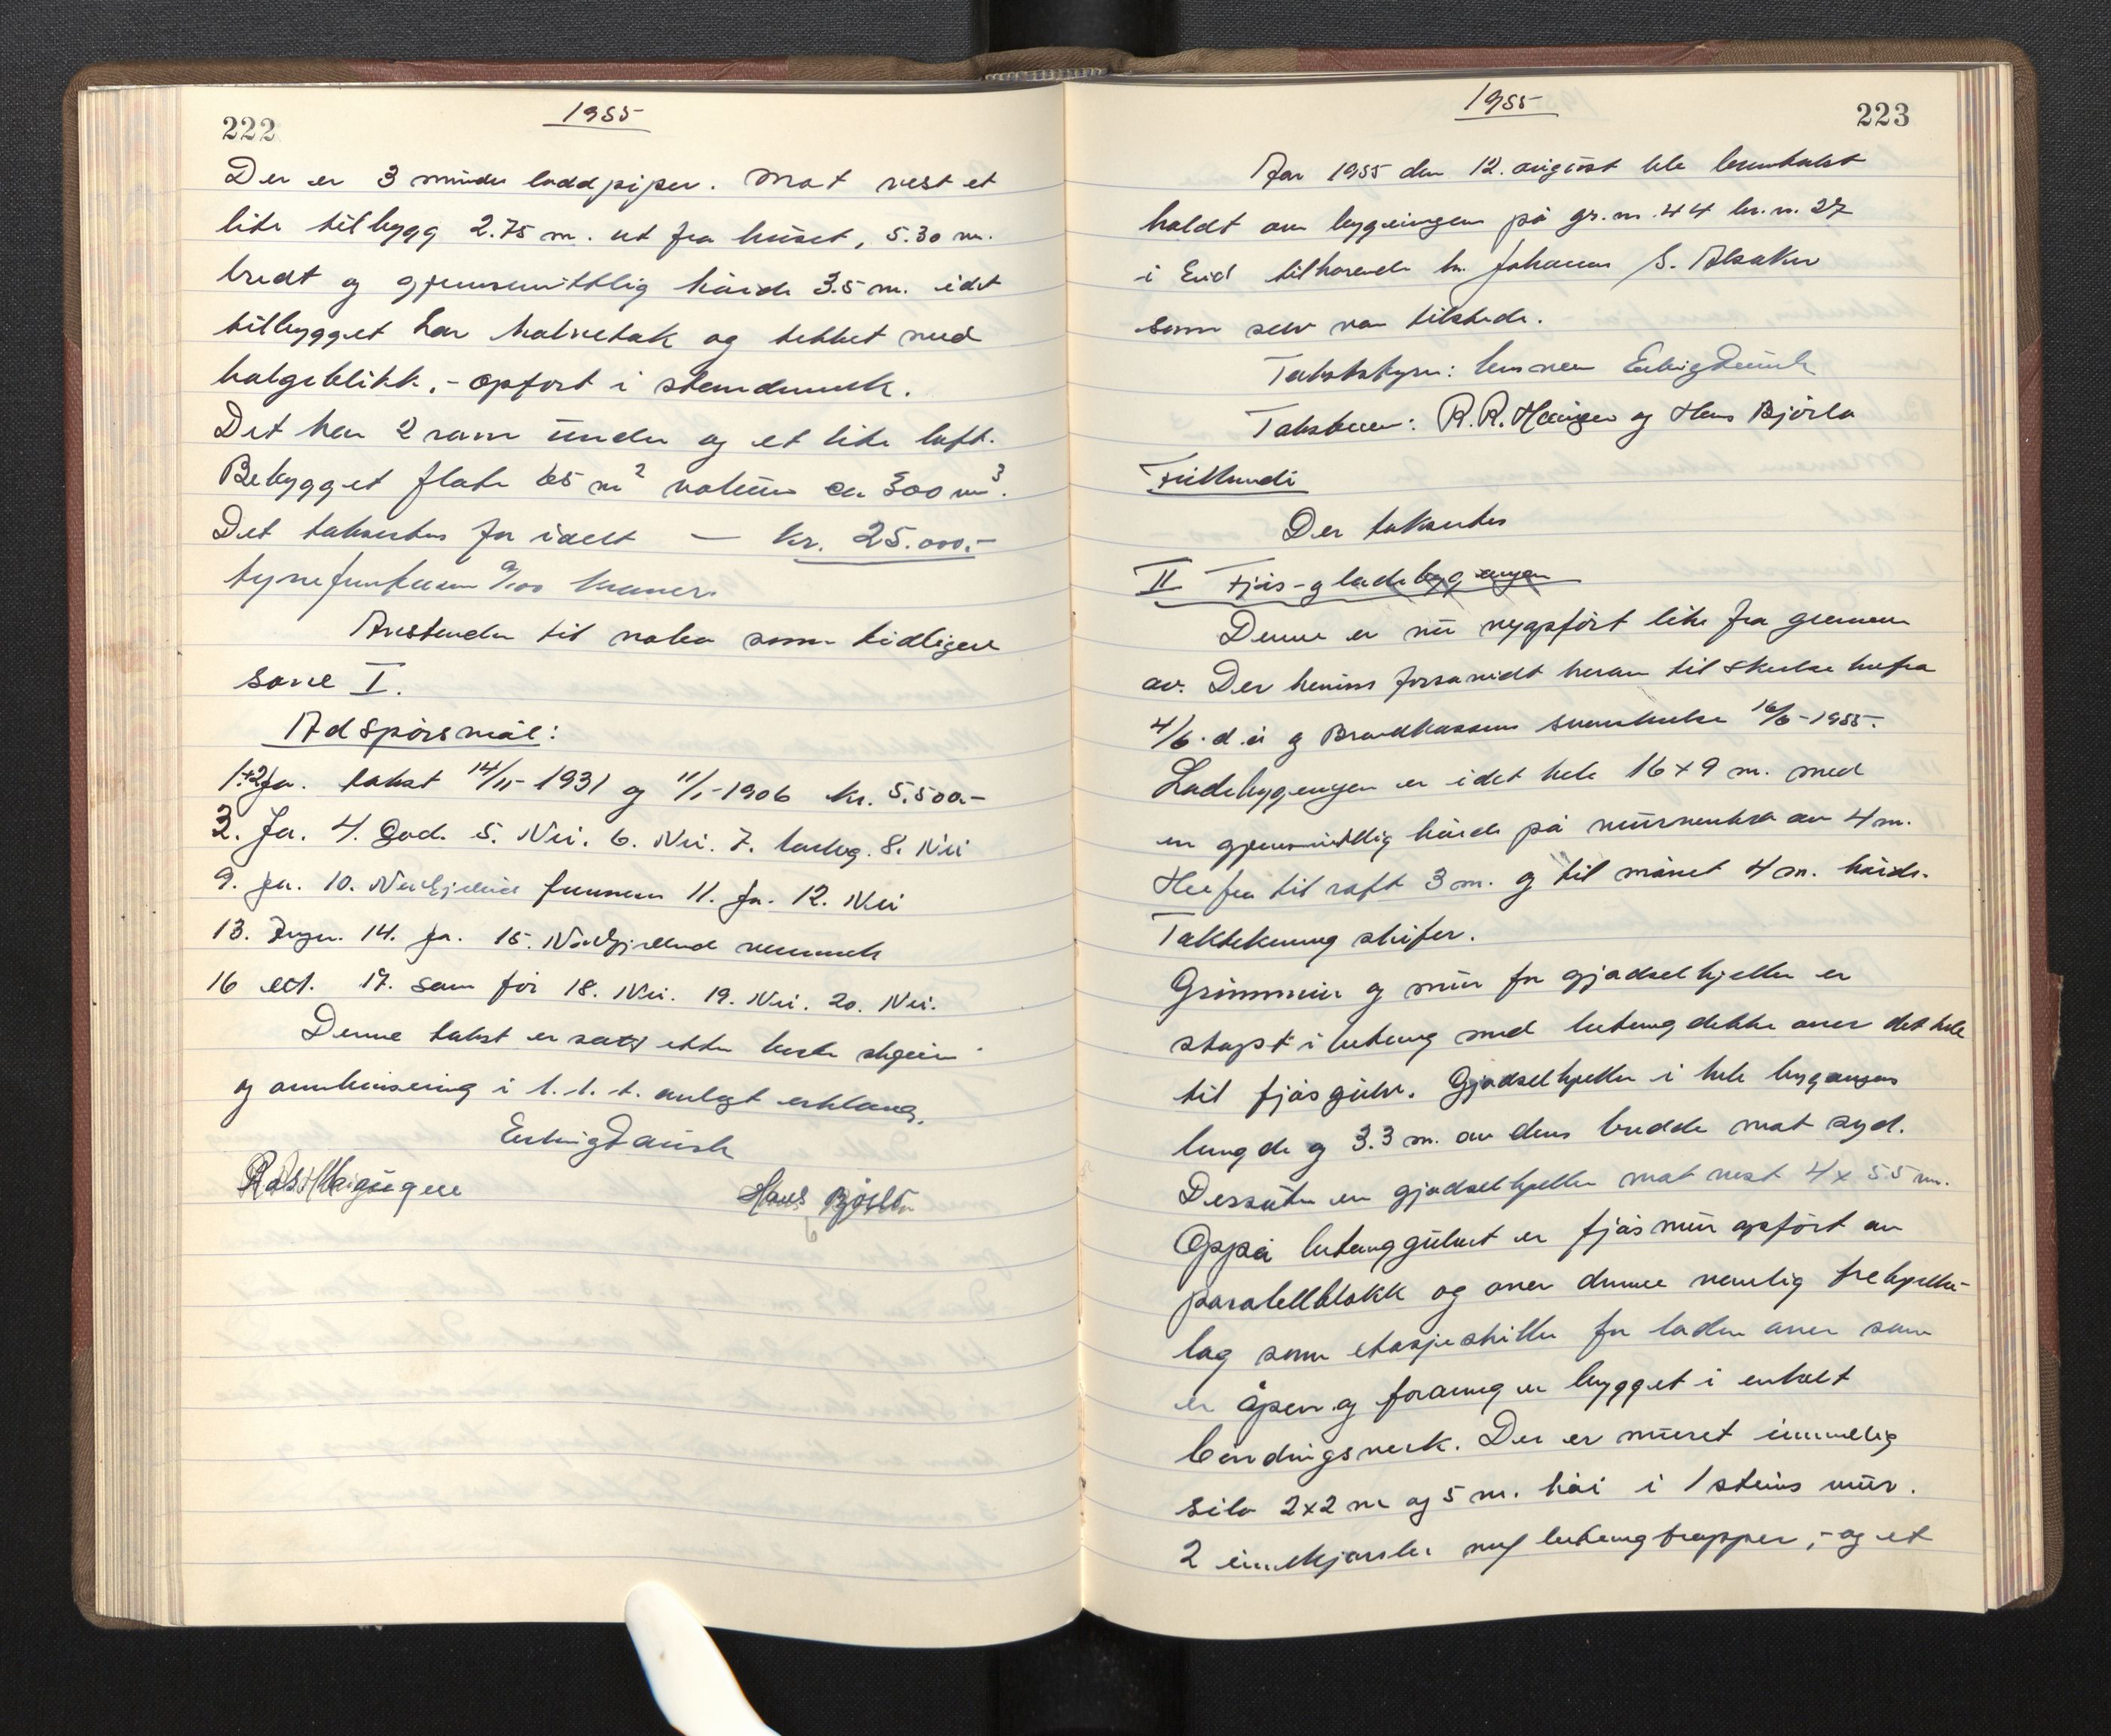 222
1955
Der er 3 murte loddpiper. Mot vest et
lite tilbygg 2.75 m. ut fra huset, 5.30 m.
bredt og gjennemsnittlig høide 3.5 m. idet
tilbygget har halvetak og tekket med
bølgeblikk, - opført i stenderverk.
Det har 2 rom under og et lite loft.
Bebygget flate 65 m² volum ca 300 m³.
Det takseres for idelt — kr. 25.000.-
kroner.
Avstander til nabo som tidligere
sone I.
Ad spørsmål:
1+2 Ja. takst 14/11-1931 og 11/1-1906 kr. 5.500-
3. Ja. 4. God. 5. Nei. 6. Nei. 7. 8. Nei
9. Ja. 10. 11. Ja. 12. Nei
13. Ingen. 14. Ja. 15.
16 17. som før 18. Nei. 19. Nei. 20. Nei.
Denne takst er satt etter beste skjønn
og overbevisning i h.t.t. avlagt erklæring.
Hans Bjørlo
1955
223
Aar 1955 den 12. august ble branntakst
holdt over bygningen på gr.nr. 44 br.n. 27
i Eid tilhørende hr. Johannes S. Alsaker
som selv var tilstede.
Takstbestyrer: lensmann
Takstmenn: R.R. Haugen og Hans Bjørlo
Der takseres
II Fjøs- og ladebygningen
Denne er nu nyopført like fra grunnen
av. Der henvises forsaavidt herom til skrivelse herfra
4/6. d.å og Brandkassens skrivelse 16/6-1955.
Ladebygningen er i det hele 16x9 m. med
en gjennemsnittlig høide på murverket av 4 m.
Herfra til raft 3 m. og til mønet 4 m. høide.
Taktekning skifer.
Grunnmur og mur for gjødselkjeller er
støpt i betong med betongdekke over det hele
til fjøsgulv. Gjødselkjeller i hele bygningens
lengde og 3.3 m. av dens bredde mot syd.
Dessuten en gjødselkjeller mot vest 4 x 5.5 m.
Oppå betonggulvet er fjøsmur opført av
parallellblokk og over denne vanlig trebjelke-
lag som etasjeskille for laden over som
er åpen og forøvrig er bygget i enkelt
bindingsverk. Der er muret innvendig
silo 2x2 m og 5 m. høi i 1 steins mur.
2 innkjørsler med betongtrapper, - og et